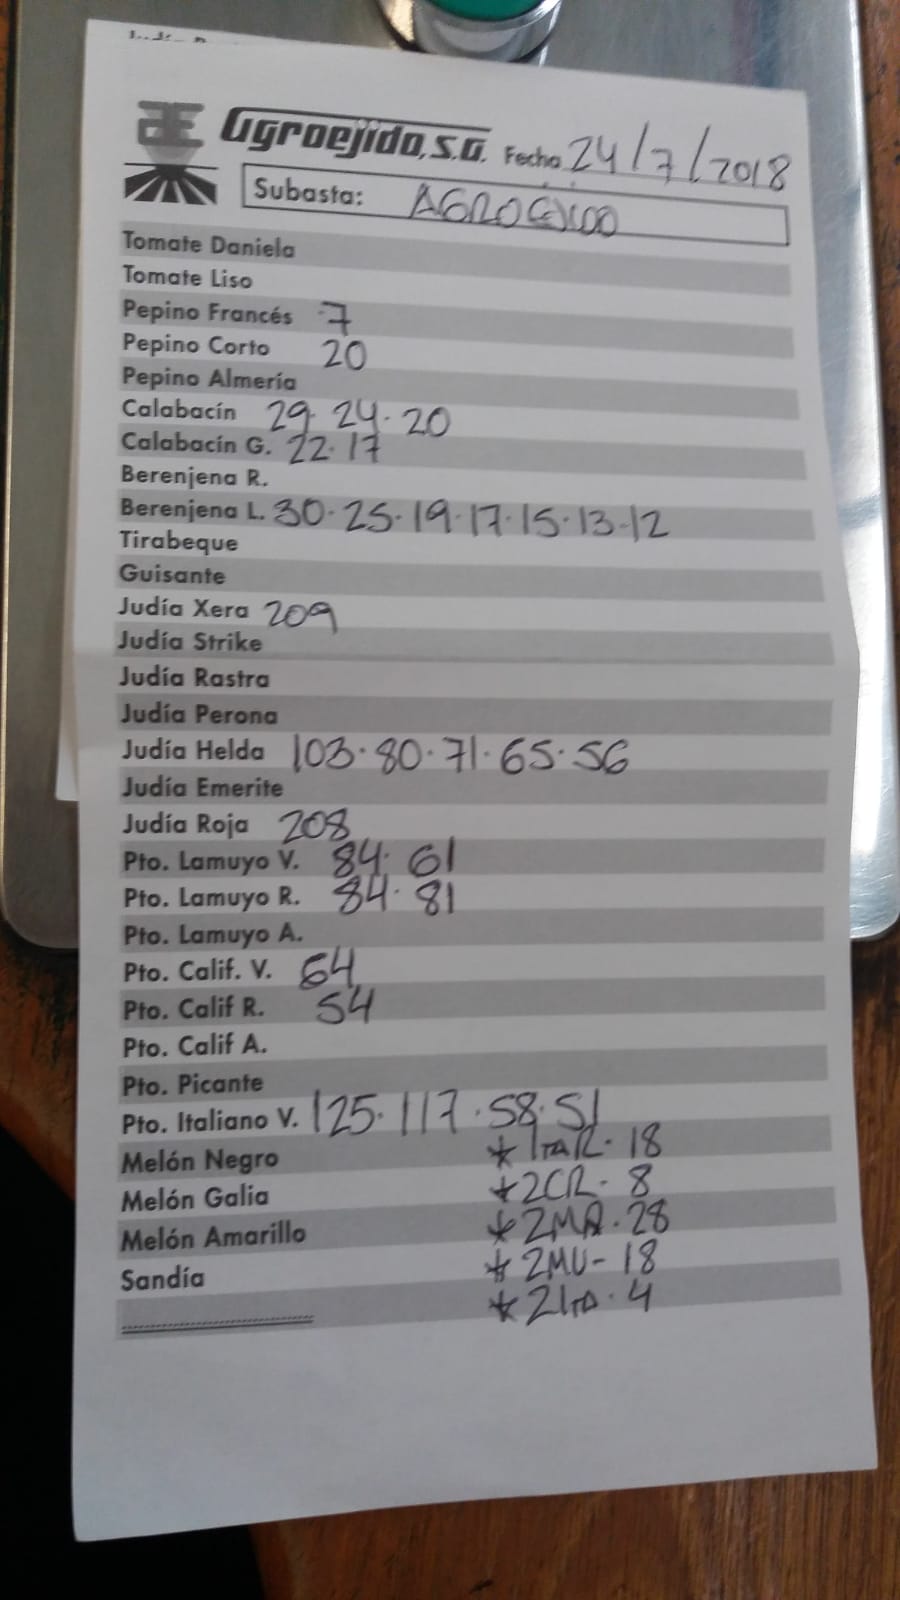 Agroejido, S.A. Fecha 24/7/2018
Subasta: AGROEJIDO
Tomate Daniela
Tomate Liso
Pepino Francés 7
Pepino Corto 20
Pepino Almería
Calabacín 29. 24. 20
Calabacín G. 22. 17
Berenjena R.
Berenjena L. 30. 25. 19. 17. 15. 13. 12
Tirabeque
Guisante
Judía Xera 209
Judía Strike
Judía Rastra
Judía Perona
Judía Helda 103. 80. 71. 65. 56
Judía Emerite
Judía Roja 208
Pto. Lamuyo V. 84. 61
Pto. Lamuyo R. 84. 81
Pto. Lamuyo A.
Pto. Calif. V. 64
Pto. Calif R. 54
Pto. Calif A.
Pto. Picante
Pto. Italiano V. 125. 117. 58. 51
Melón Negro * 1TAR. 18
Melón Galia * 2CR. 8
Melón Amarillo * 2MA. 28
Sandía * 2MU- 18
* 2ITA. 4